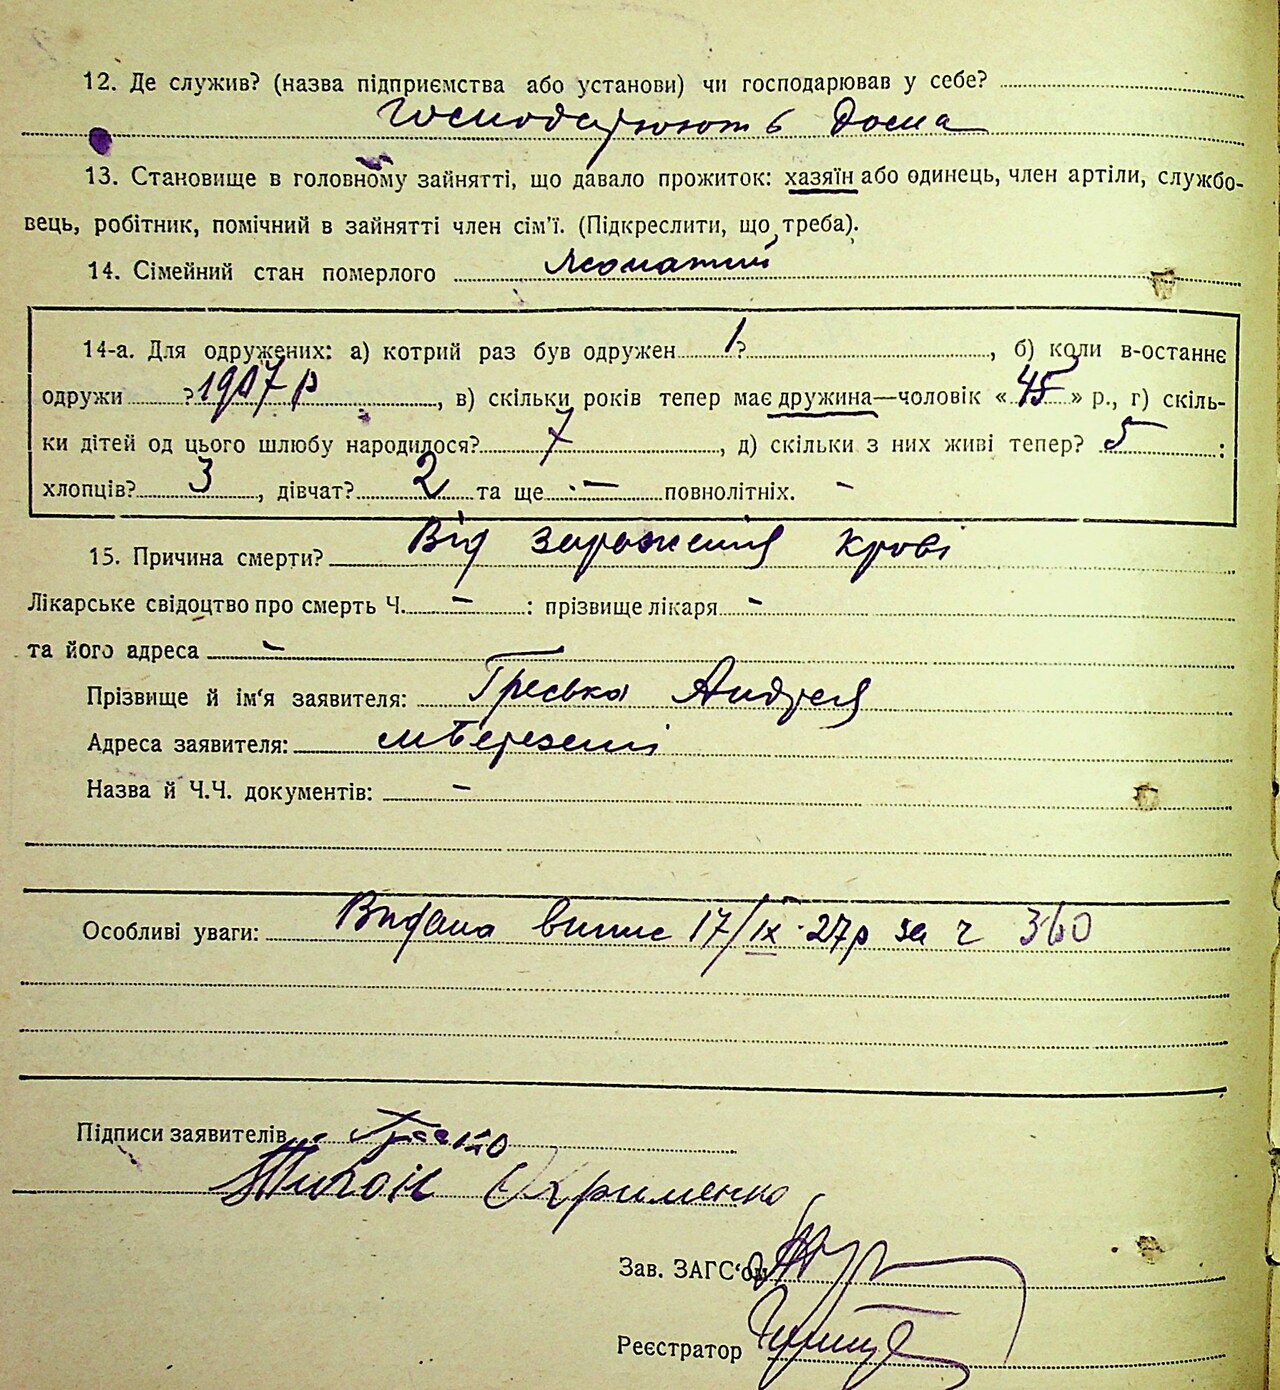 12. Де служив? (назва підприємства або установи) чи господарював у себе?
Господарюют в дома
13. Становище в головному зайнятті, що давало прожиток: хазяїн або одинець, член артіли, службо-
вець, робітник, помічний в зайнятті член сім'ї. (Підкреслити, що треба).
14. Сімейний стан померлого Жонатий
14-а. Для одружених: а) котрий раз був одружен 1?, б) коли в-останнє
одружи ? 1907 р, в) скільки років тепер має дружина—чоловік « 45 » р., г) скіль-
ки дітей од цього шлюбу народилося? 7, д) скільки з них живі тепер? 5 :
хлопців? 3, дівчат? 2 та ще — повнолітніх. –
15. Причина смерти? Від зараження крові
Лікарське свідоцтво про смерть Ч. – : прізвище лікаря –
та його адреса –
Прізвище й ім'я заявителя: Гресько Андрея
Адреса заявителя: м Березані
Назва й Ч.Ч. документів: –
Особливі уваги: Видана випис 17/IX 27р за ч 360
Підписи заявителів
Тихон Охрименко
Зав. ЗАГС'ом
Реєстратор